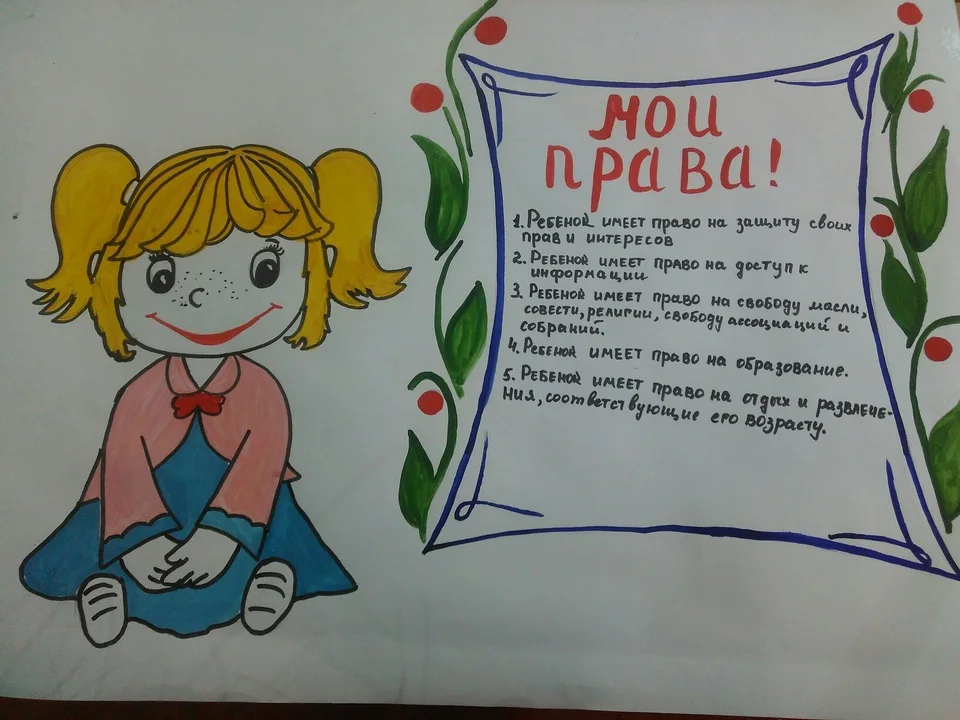 Мои
права!
1. Ребенок имеет право на защиту своих
прав и интересов
2. Ребенок имеет право на доступ к
информации
3. Ребенок имеет право на свободу масли,
совести, религии, свободу ассоциаций и
собраний.
4. Ребенок имеет право на образование.
5. Ребенок имеет право на отдых и развлече-
ния, соответствующие его возрасту.